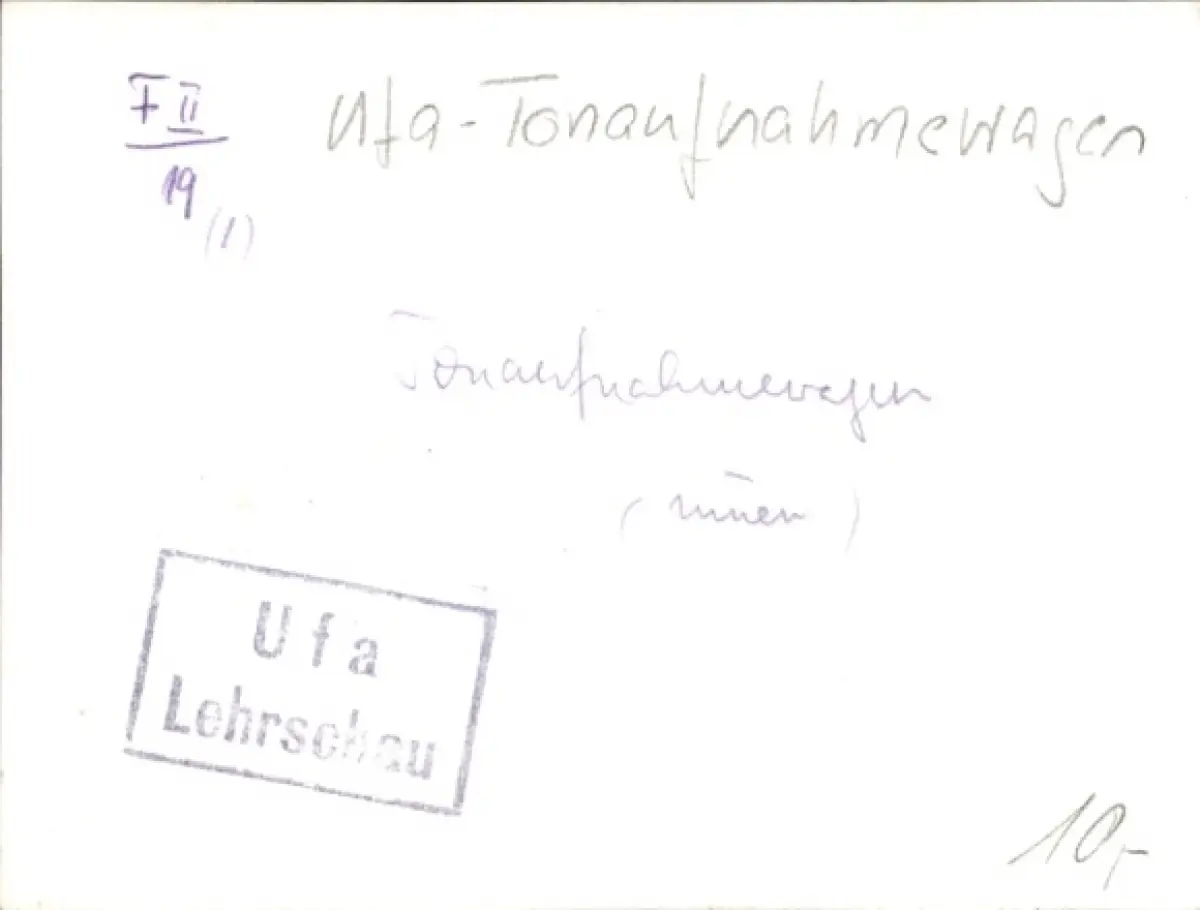 F II
19
(1)
Ufa-Tonaufnahmewagen
Tonaufnahmewagen
(innen)
Ufa
Lehrschau
10,-